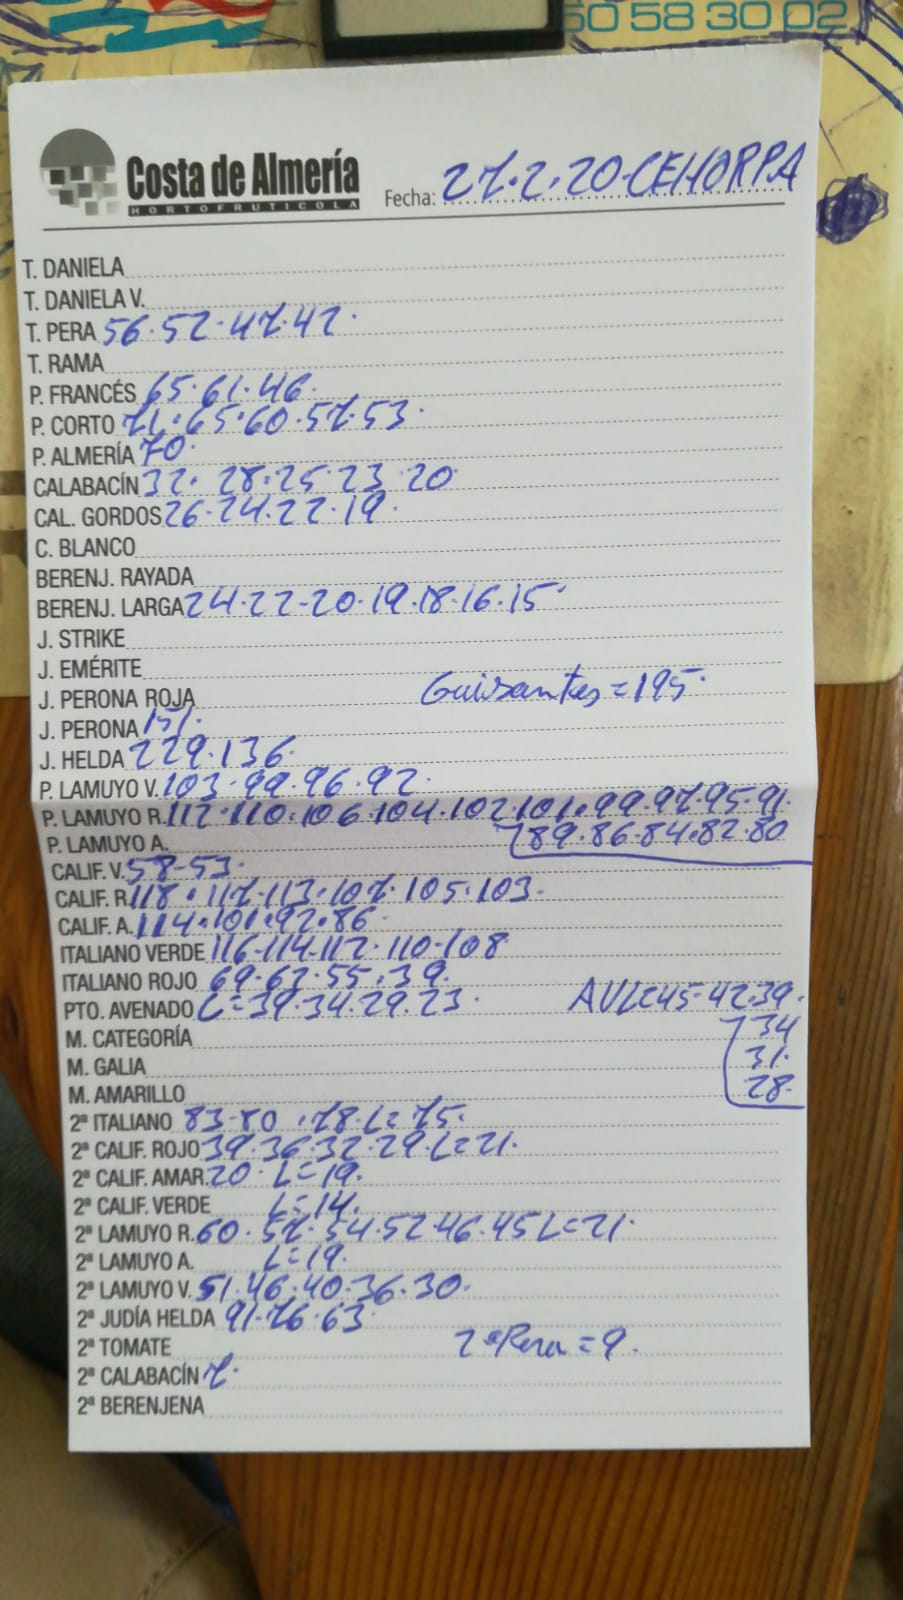 60 58 30 02
Costa de Almería
HORTOFRUTICOLA
Fecha: 27.2.20.CEHORPA
T. DANIELA
T. DANIELA V.
T. PERA 56.52.47.42.
T. RAMA
P. FRANCÉS 65.61.46.
P. CORTO 71.65.60.57.53.
P. ALMERÍA 70.
CALABACÍN 32. 28.25.23.20
CAL. GORDOS 26.24.22.19.
C. BLANCO
BERENJ. RAYADA
BERENJ. LARGA 24.22-20.19.18.16.15.
J. STRIKE
J. EMÉRITE
J. PERONA ROJA Guisantes=195.
J. PERONA 157.
J. HELDA 229.136.
P. LAMUYO V. 103.99.96.92.
P. LAMUYO R. 112.110.106.104.102.101.99.97.95.91.
P. LAMUYO A. 89.86.84.82.80
CALIF. V. 58-53.
CALIF. R. 118.117.113.107.105.103.
CALIF. A. 114.101.92.86
ITALIANO VERDE 116-114-112.110-108
ITALIANO ROJO 69-63.55.39.
PTO. AVENADO L=39.34.29.23. 45-42.39.
M. CATEGORÍA 34
M. GALIA 31.
M. AMARILLO 28.
2ª ITALIANO 83-80.78.L=75.
2ª CALIF. ROJO 39.36.32.29.L=21.
2ª CALIF. AMAR. 20. L=19.
2ª CALIF. VERDE L=14.
2ª LAMUYO R. 60.57.54.52.46.45 L=21.
2ª LAMUYO A. L=19.
2ª LAMUYO V. 51.46.40.36.30.
2ª JUDÍA HELDA 91.76.63.
2ª TOMATE 2ª Pera=9.
2ª CALABACÍN 7.
2ª BERENJENA